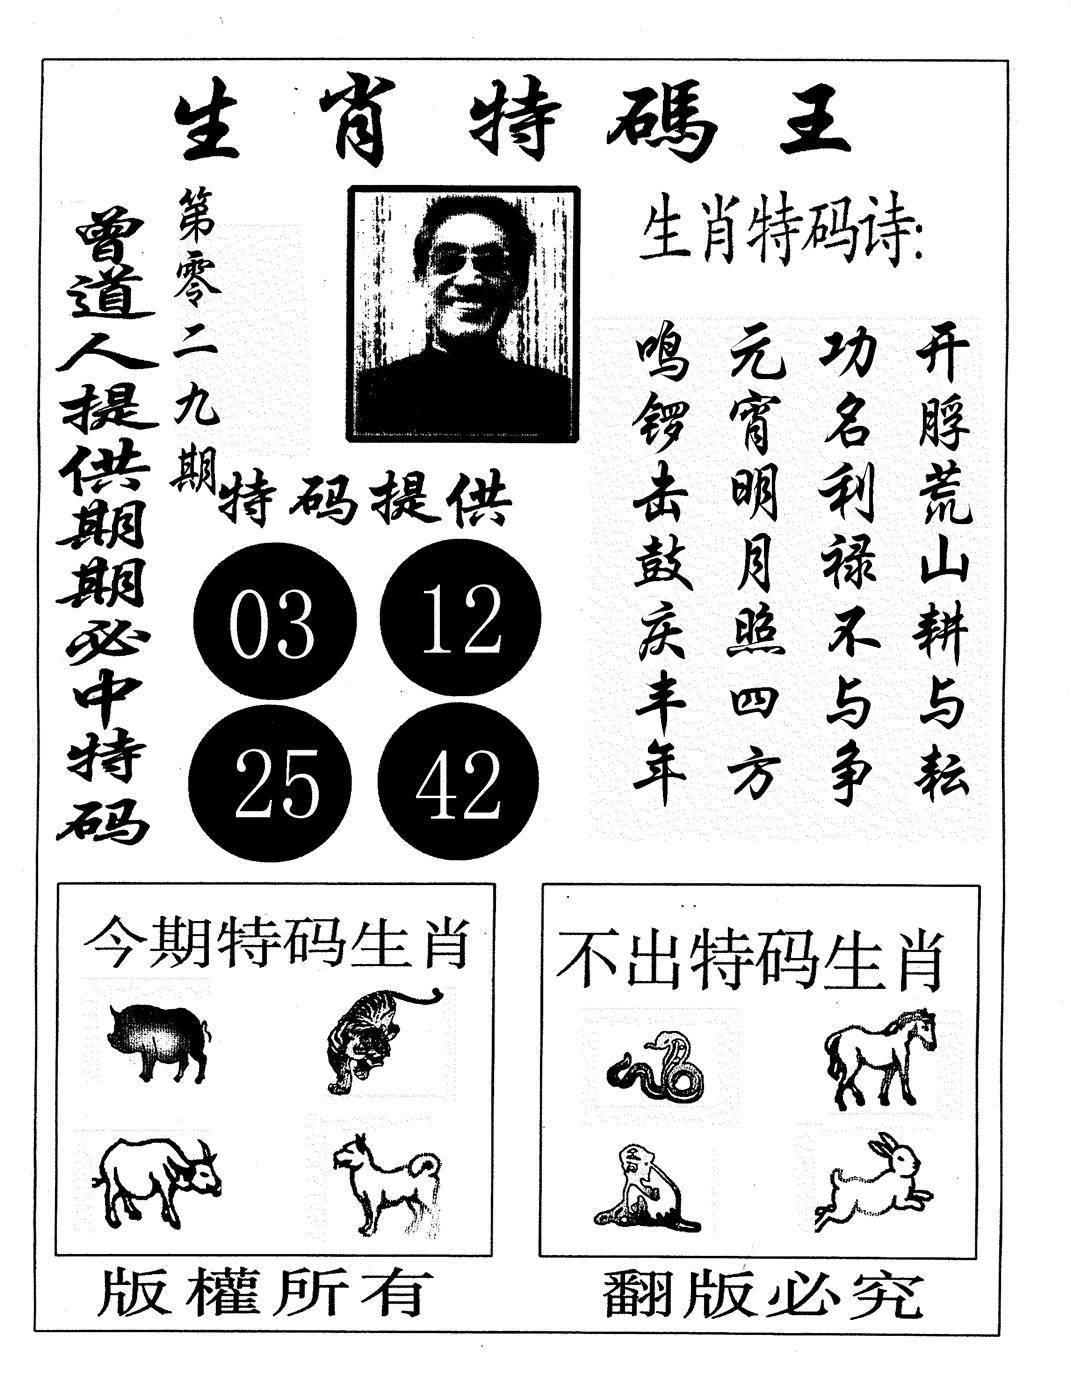 生肖特碼王
曾道人提供期期必中特码
第零二九期
生肖特码诗:
开脬荒山耕与耘
功名利禄不与争
元宵明月照四方
鸣锣击鼓庆丰年
特码提供
03 12
25 42
今期特码生肖
不出特码生肖
版權所有
翻版必究